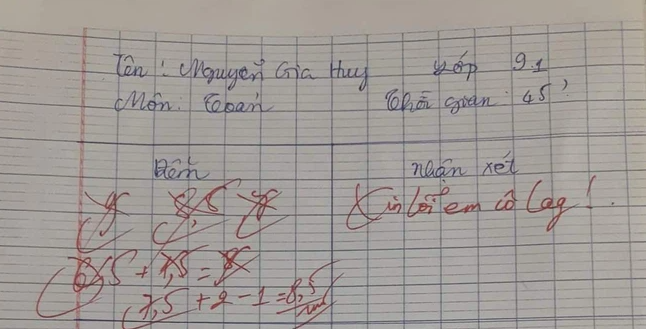 Tên: Nguyễn Gia Huy Lớp 9.1
Môn: Toán Thời gian: 45'
Điểm Nhận xét
8,5 Xin lỗi em cô lag!
+ 7,5 = 8
7,5 + 2 - 1 = 8,5